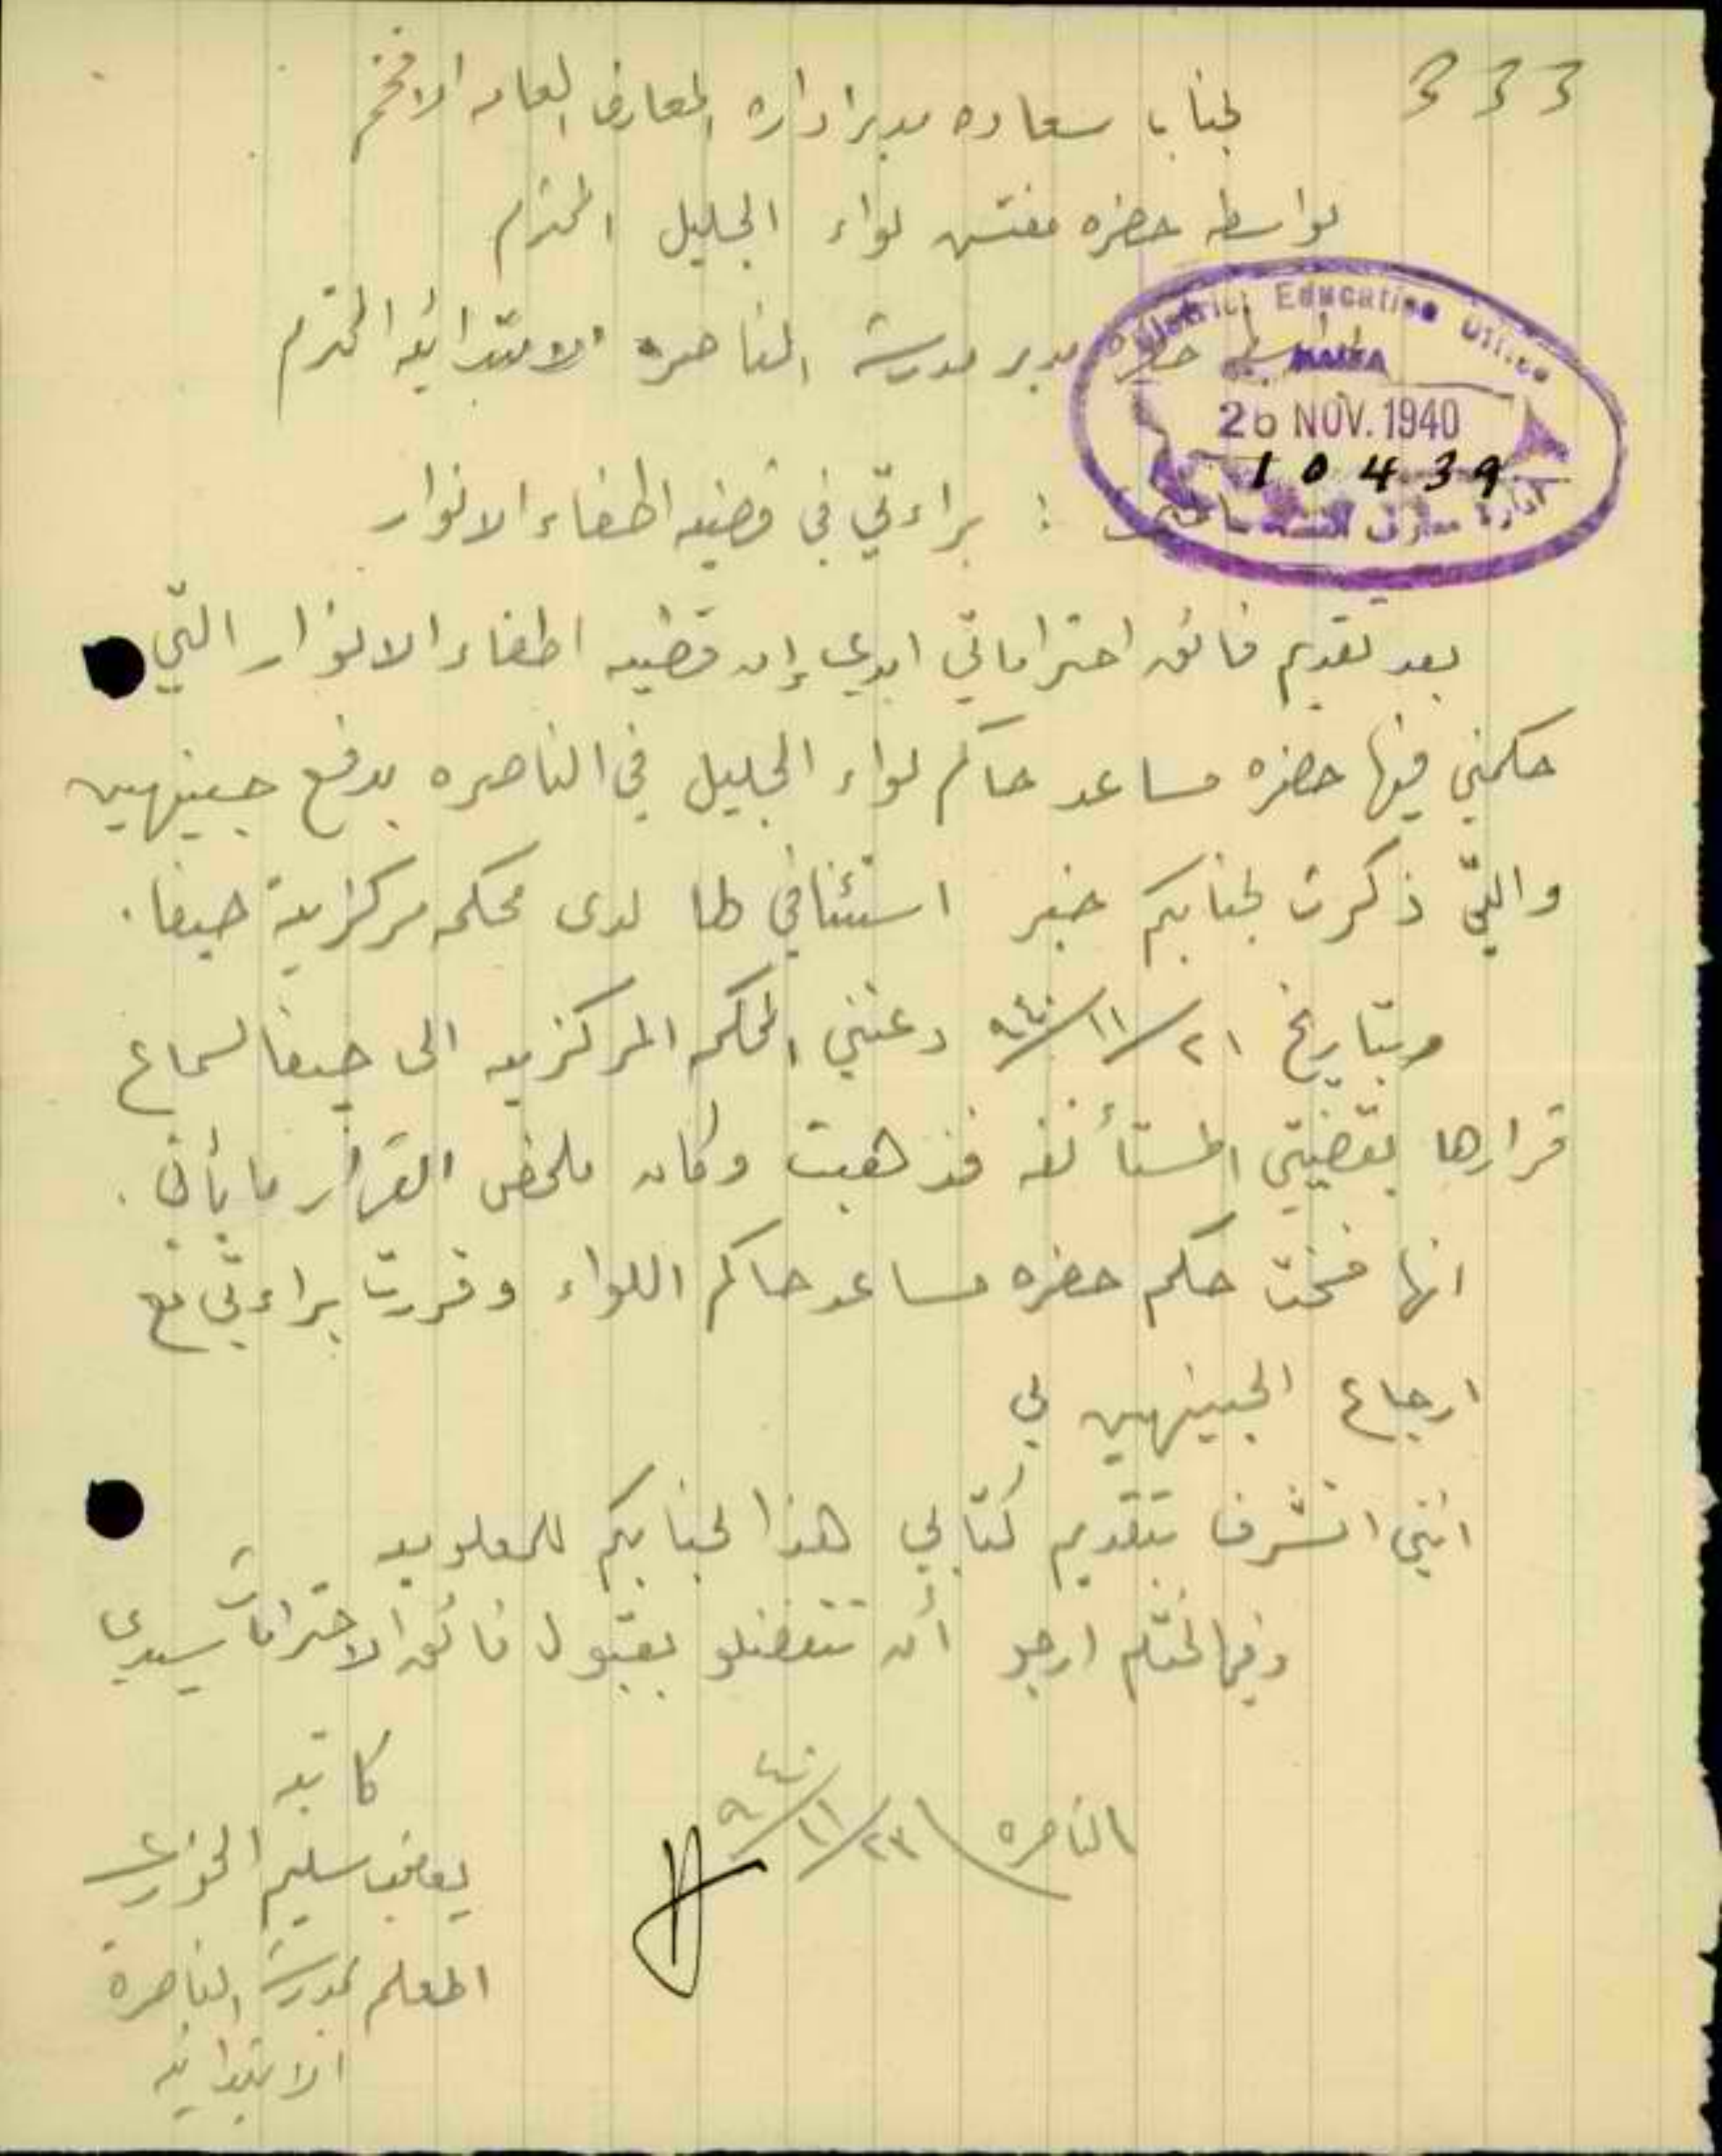 333
لجناب سعاده مدير اداره المعارف العامه الافخم
بواسطه حضره مفتش لواء الجليل المحترم
مدير مدرسة الناصره الابتدائيه المحترم
District Education Office
HAIFA
26 NOV. 1940
10439
ادارة معارف
: براءتي في قضيه اطفاء الانوار
بعد تقديم فائق احتراماتي ابدي إن قضيه اطفاء الانوار التي
حكمني فيها حضره مساعد حاكم لواء الجليل في الناصره بدفع جنيهين
والتي ذكرت لجنابكم خبر استئنافي لها لدى محكمه مركزية حيفا .
وبتاريخ ٢١/١١/٩٤٠ دعتني المحكمه المركزيه الى حيفا لسماع
قرارها بقضيتي المستأنفه فذهبت وكان ملخص القرار ما يأتي .
انها فسخت حكم حضره مساعد حاكم اللواء وقررت براءتي مع
ارجاع الجنيهين لي
انني اتشرف بتقديم كتابي هذا لجنابكم للمعلوميه
وفي الختام ارجو أن تتفضلو بقبول فائق الاحترامات سيدي
كاتبه
الناصره ٢٣/١١/٩٤٠
يعقوب سليم الخوري
المعلم بمدرسة الناصرة
الابتدائيه